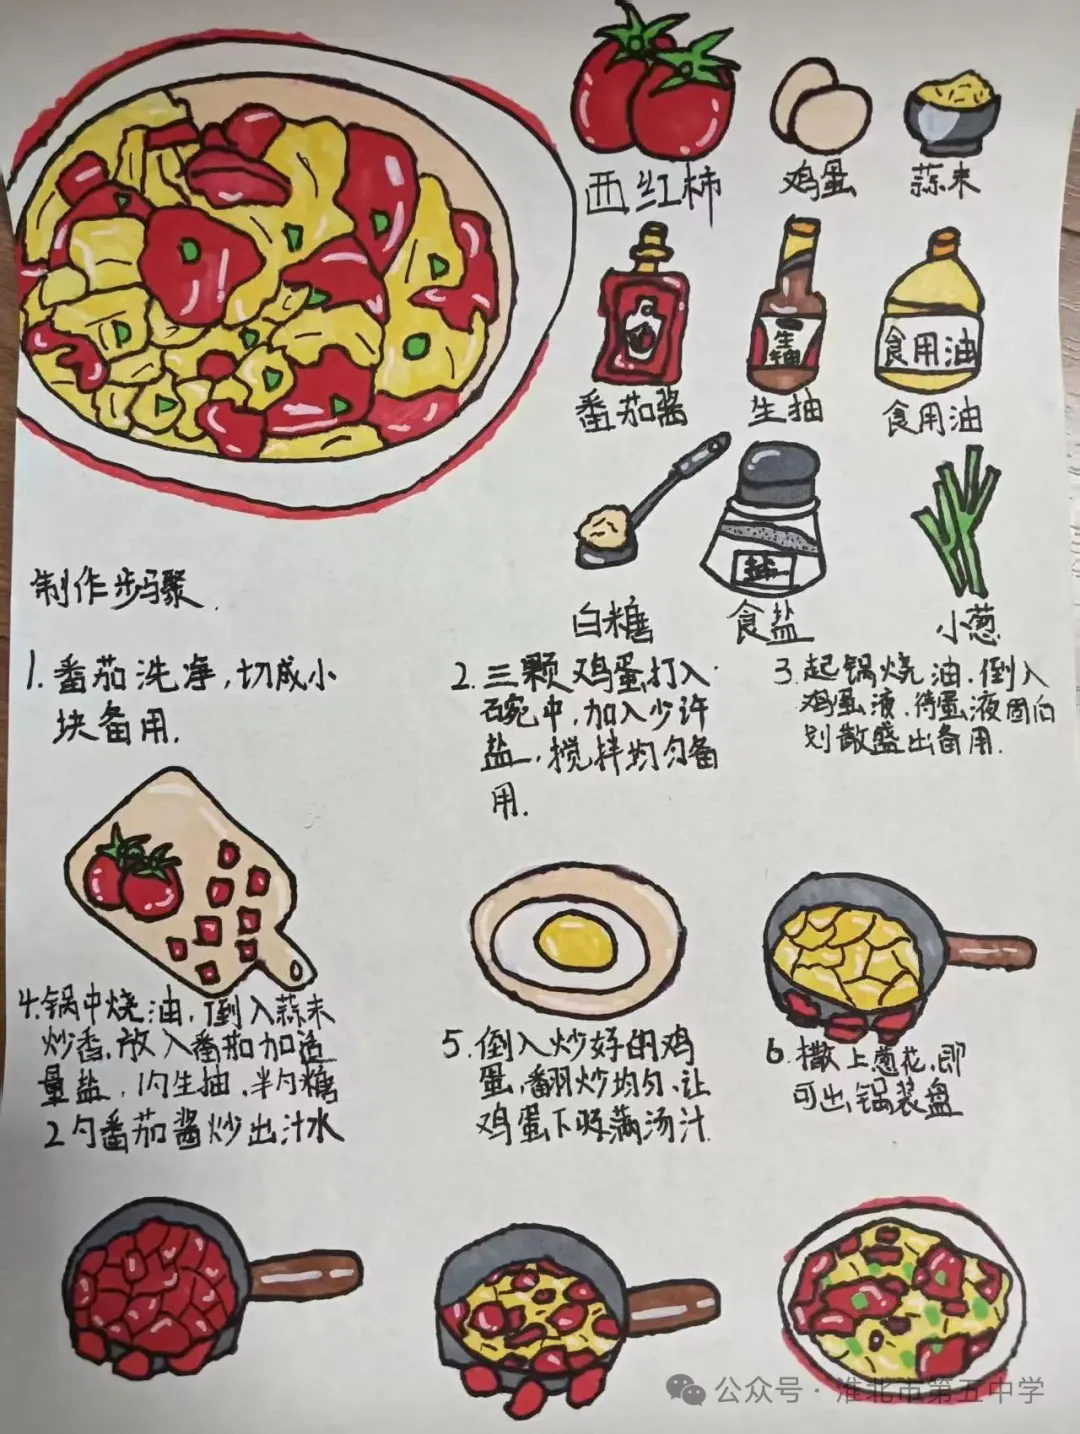 西红柿
鸡蛋
蒜末
番茄酱
生抽
生抽
食用油
食用油
白糖
盐
食盐
小葱
制作步骤.
1. 番茄洗净,切成小
块备用.
2. 三颗鸡蛋打入
碗中,加入少许
盐,搅拌均匀备
用.
3. 起锅烧油.倒入
鸡蛋液.待蛋液固
划散盛出备用.
4. 锅中烧油,倒入蒜末
炒香.放入番茄加适
量盐,1勺生抽,半勺糖
2勺番茄酱炒出汁水
5. 倒入炒好的鸡
蛋,翻炒均匀.让
鸡蛋下满汤汁.
6. 撒上葱花.即
可出锅装盘
公众号·淮北市第五中学